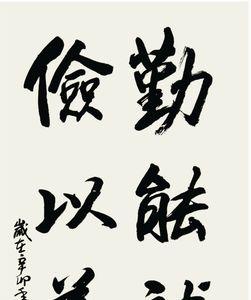 勤能
儉以
歲在辛卯